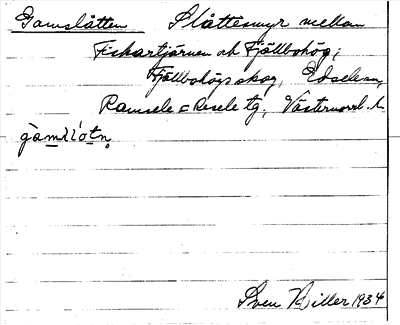 Gamslåtten Slåttesmyr mellan
Fiskartjärnen och Fjällbohög;
Fjällbohögs skog, Edselesn,
Ramsele o Resele tg, Västernorrl. l.
Sven Biller 1934